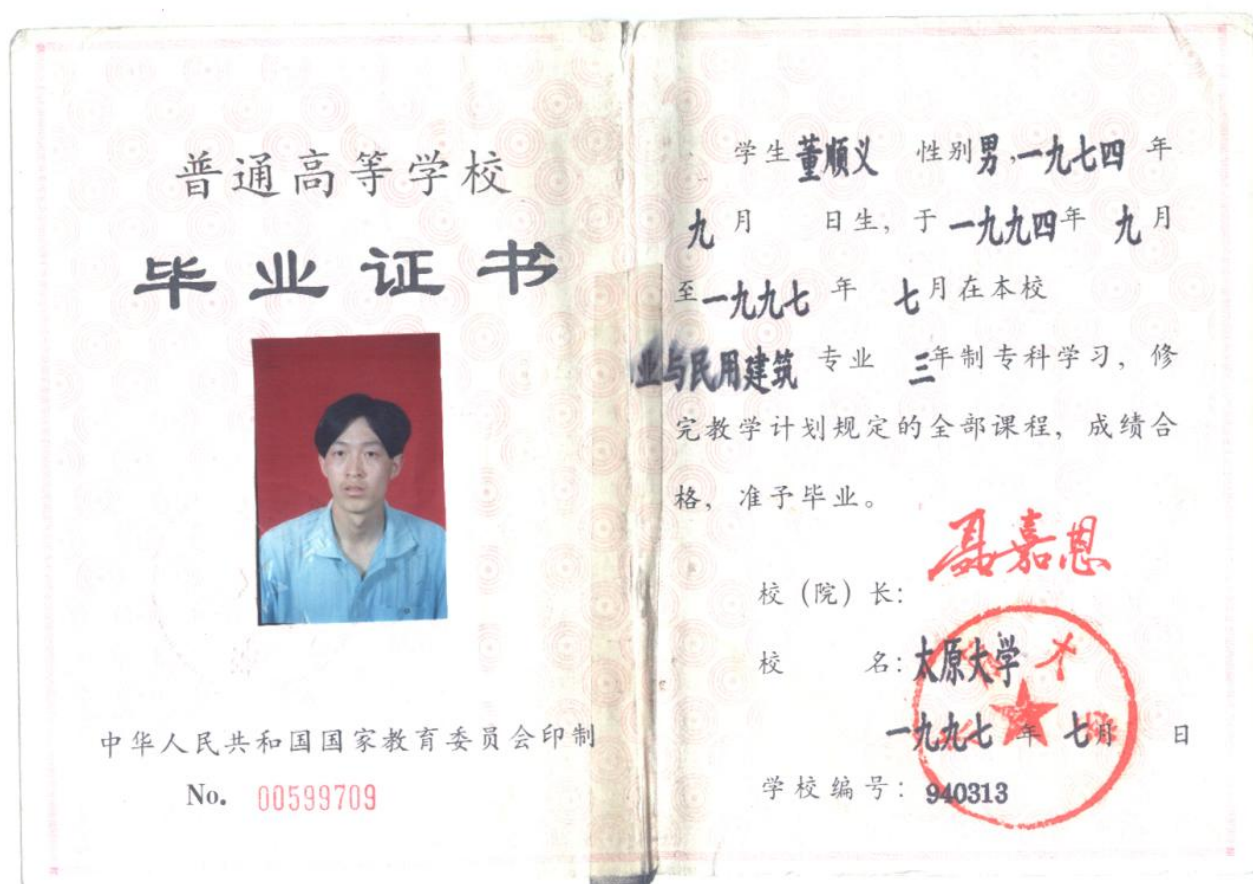 普通高等学校
毕业证书
中华人民共和国国家教育委员会印制
No. 00599709
学生董顺义 性别男,一九七四年
九月 日生, 于一九九四年 九月
至一九九七年 七月在本校
业与民用建筑专业 三年制专科学习, 修
完教学计划规定的全部课程, 成绩合
格, 准予毕业。
校(院)长: 聂嘉恩
校 名: 太原大学
一九九七年 七月 日
学校编号: 940313